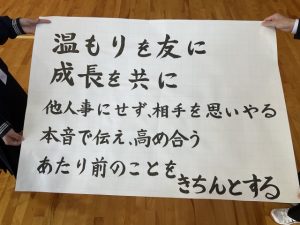 温もりを友に
成長を共に
他人事にせず、相手を思いやる
本音で伝え、高め合う
あたり前のことを
きちんとする